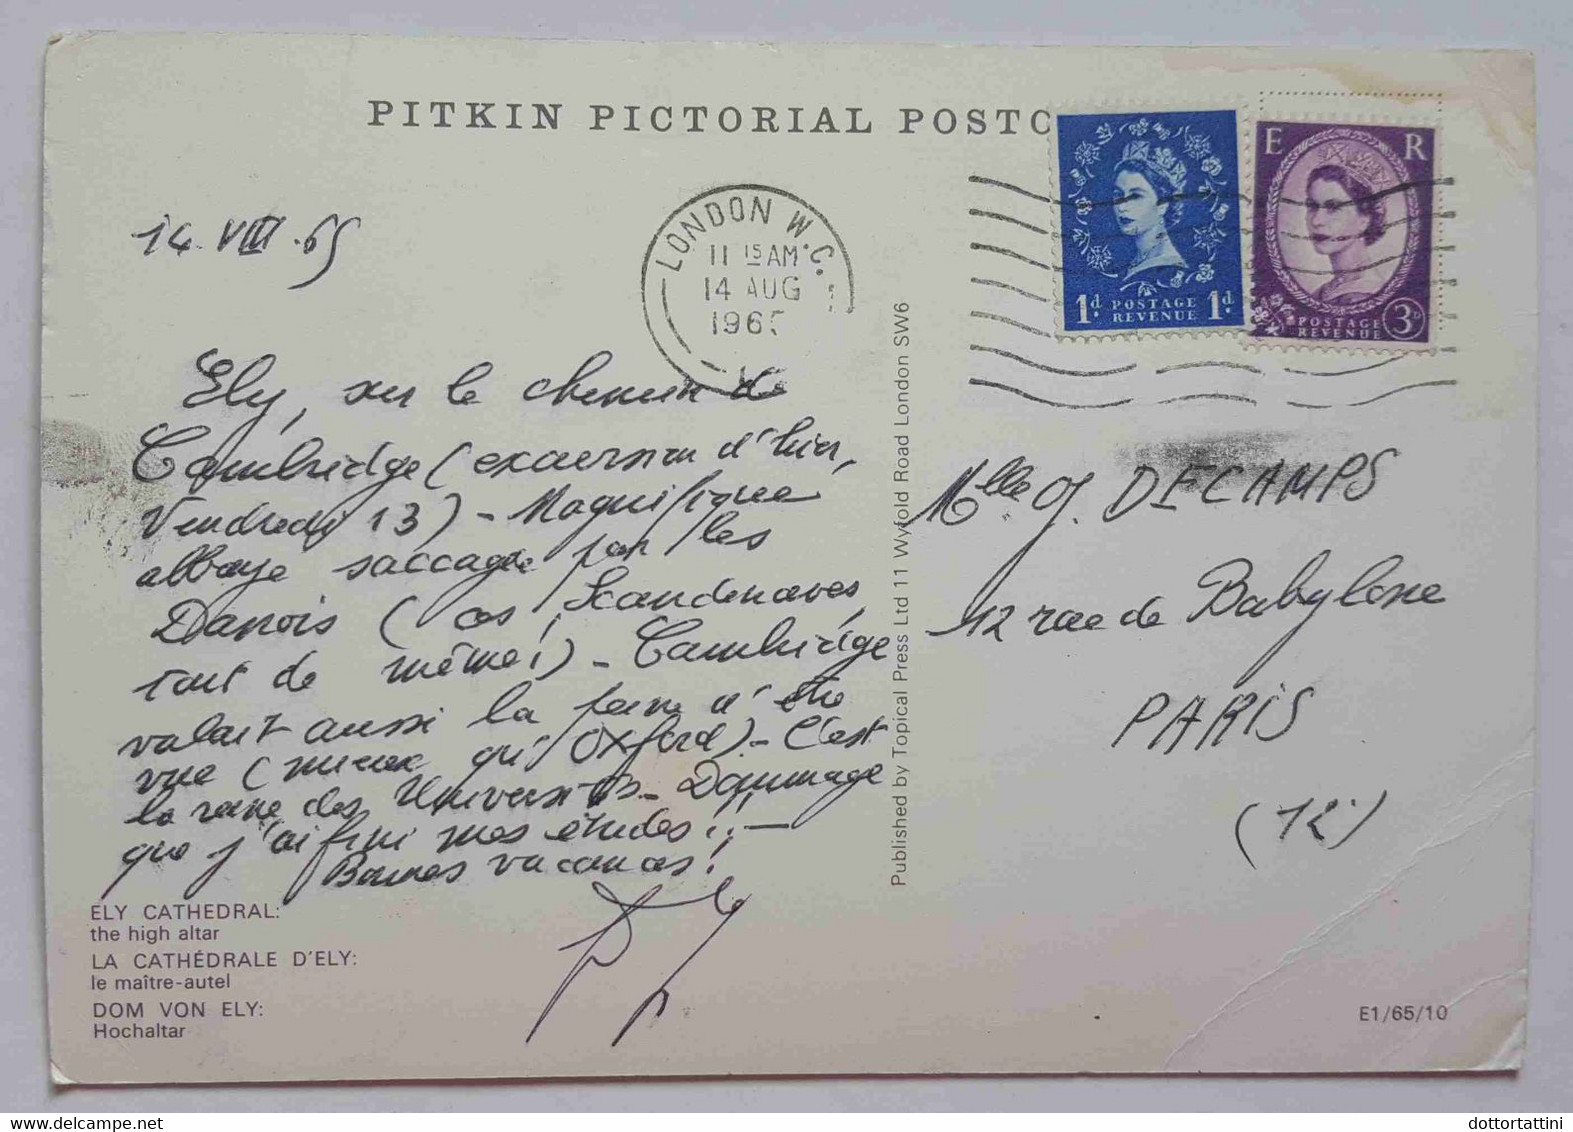 PITKIN PICTORIAL POSTC
14.VIII.65
LONDON W.C.
11 15 AM
14 AUG
1965
1d. POSTAGE REVENUE 1d.
E R
POSTAGE REVENUE 3D
Ely, sur le chemin de
Cambridge (excursion d'hier,
Vendredi 13) - Magnifique
abbaye saccagée par les
Danois (ces Scandinaves,
tout de même!) - Cambridge
valait aussi la peine d'être
vue (mieux qu'Oxford) - C'est
la reine des Universités - Dommage
que j'ai fini mes études!! -
Bonnes vacances!
Mlle J. DECAMPS
12 rue de Babylone
PARIS
(12)
Published by Topical Press Ltd 11 Wyfold Road London SW6
ELY CATHEDRAL:
the high altar
LA CATHÉDRALE D'ELY:
le maître-autel
DOM VON ELY:
Hochaltar
E1/65/10
dottortattini